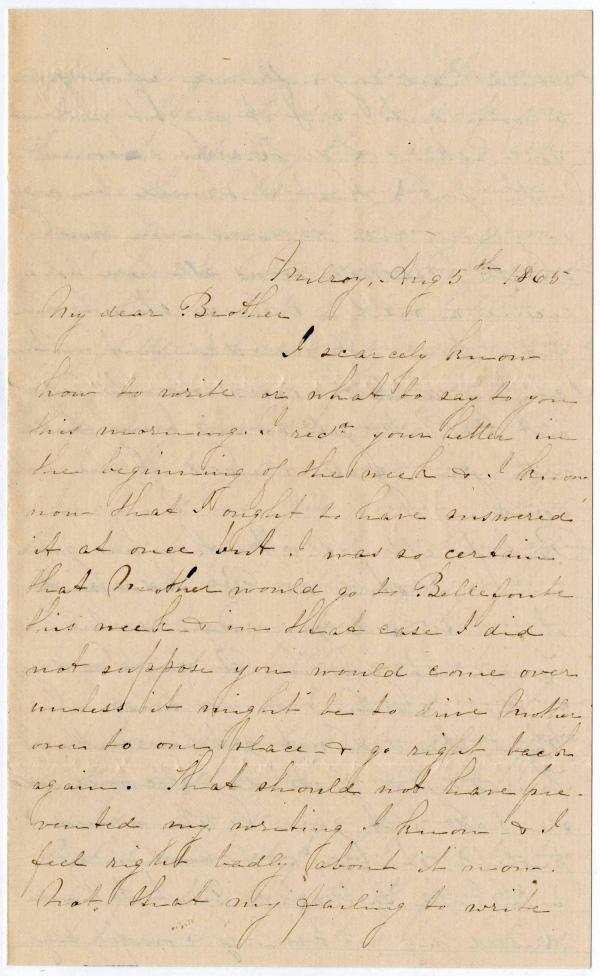 Milroy, Aug 5th 1865
My dear Brother
I scarcely know
how to write or what to say to you
this morning. I recd your letter in
the beginning of the week & I know
now that I ought to have answered
it at once but I was so certain
that Mother would go to Bellefonte
this week & in that case I did
not suppose you would come over
unless it might be to drive Mother
over to our place - & go right back
again. That should not have pre-
vented my writing I know & I
feel right badly about it now.
Not that my failing to write